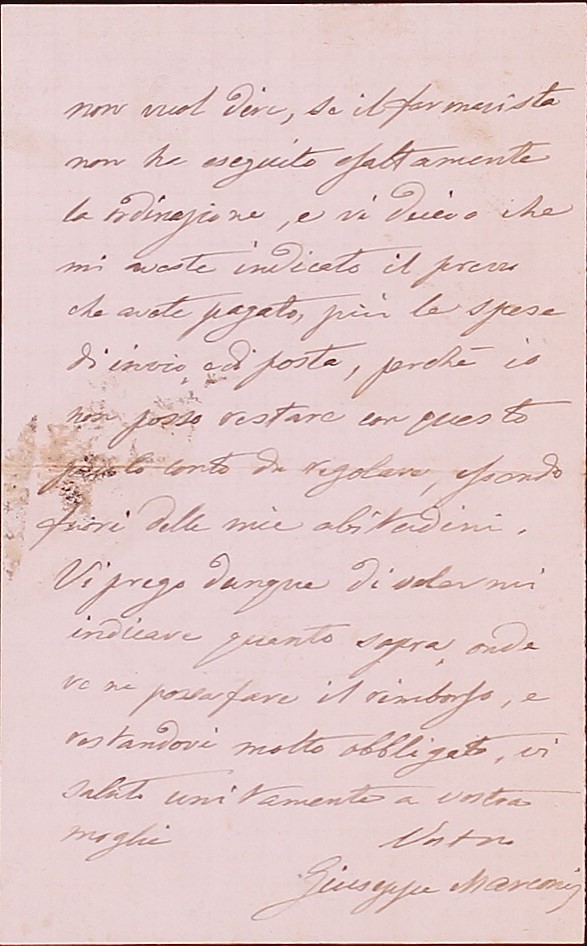 non vuol dire, se il farmacista
non ha eseguito esattamente
la ordinazione, e vi dicevo che
mi aveste indicato il prezzo
che avete pagato, più le spese
di invio, e di posta, perchè io
non posso restare con questo
piccolo conto da regolare, essendo
fuori delle mie abitudini.
Vi prego dunque di volermi
indicare quanto sopra, onde
ve ne possa fare il rimborso, e
restandovi molto obbligato, vi
saluto unitamente a vostra
moglie Vostro
Giuseppe Marconi